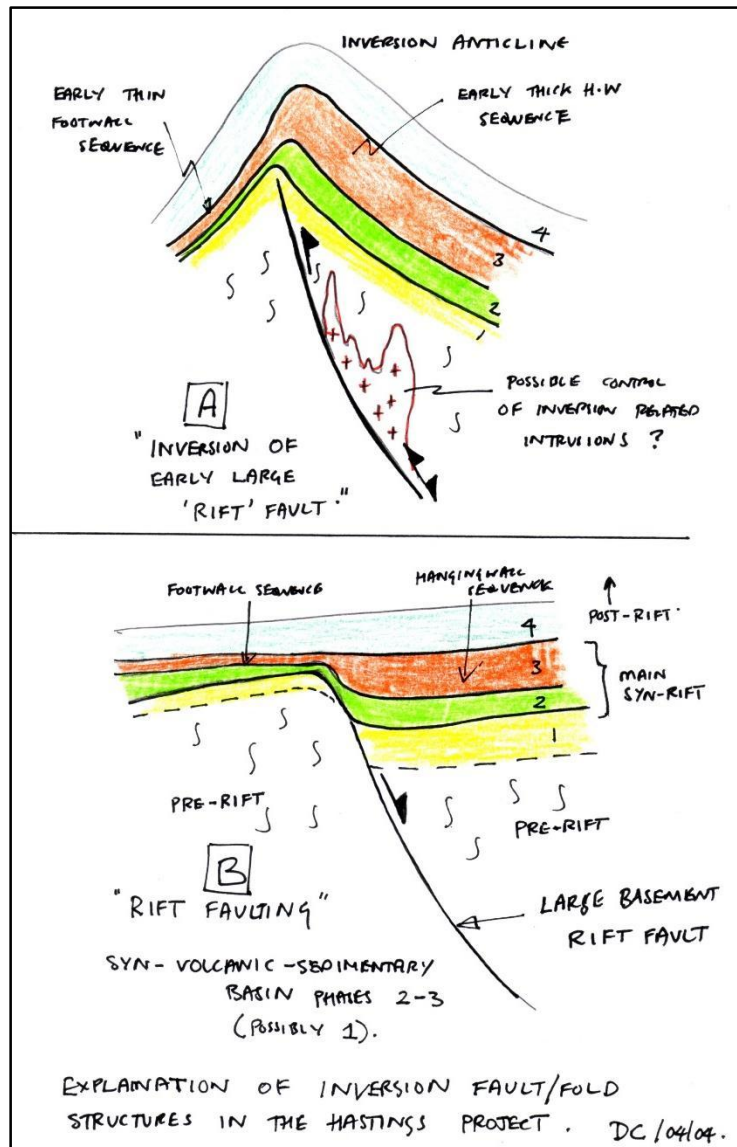 INVERSION ANTICLINE
EARLY THIN
FOOTWALL
SEQUENCE
EARLY THICK H.W
SEQUENCE
4
3
2
1
A
"INVERSION OF
EARLY LARGE
'RIFT' FAULT."
POSSIBLE CONTROL
OF INVERSION RELATED
INTRUSIONS ?
FOOTWALL SEQUENCE
HANGINGWALL
SEQUENCE
POST-RIFT.
4
3
2
1
MAIN
SYN-RIFT
PRE-RIFT
PRE-RIFT
B
"RIFT FAULTING"
LARGE BASEMENT
RIFT FAULT
SYN-VOLCANIC-SEDIMENTARY
BASIN PHASES 2-3
(POSSIBLY 1).
EXPLANATION OF INVERSION FAULT/FOLD
STRUCTURES IN THE HASTINGS PROJECT. DC/04/04.